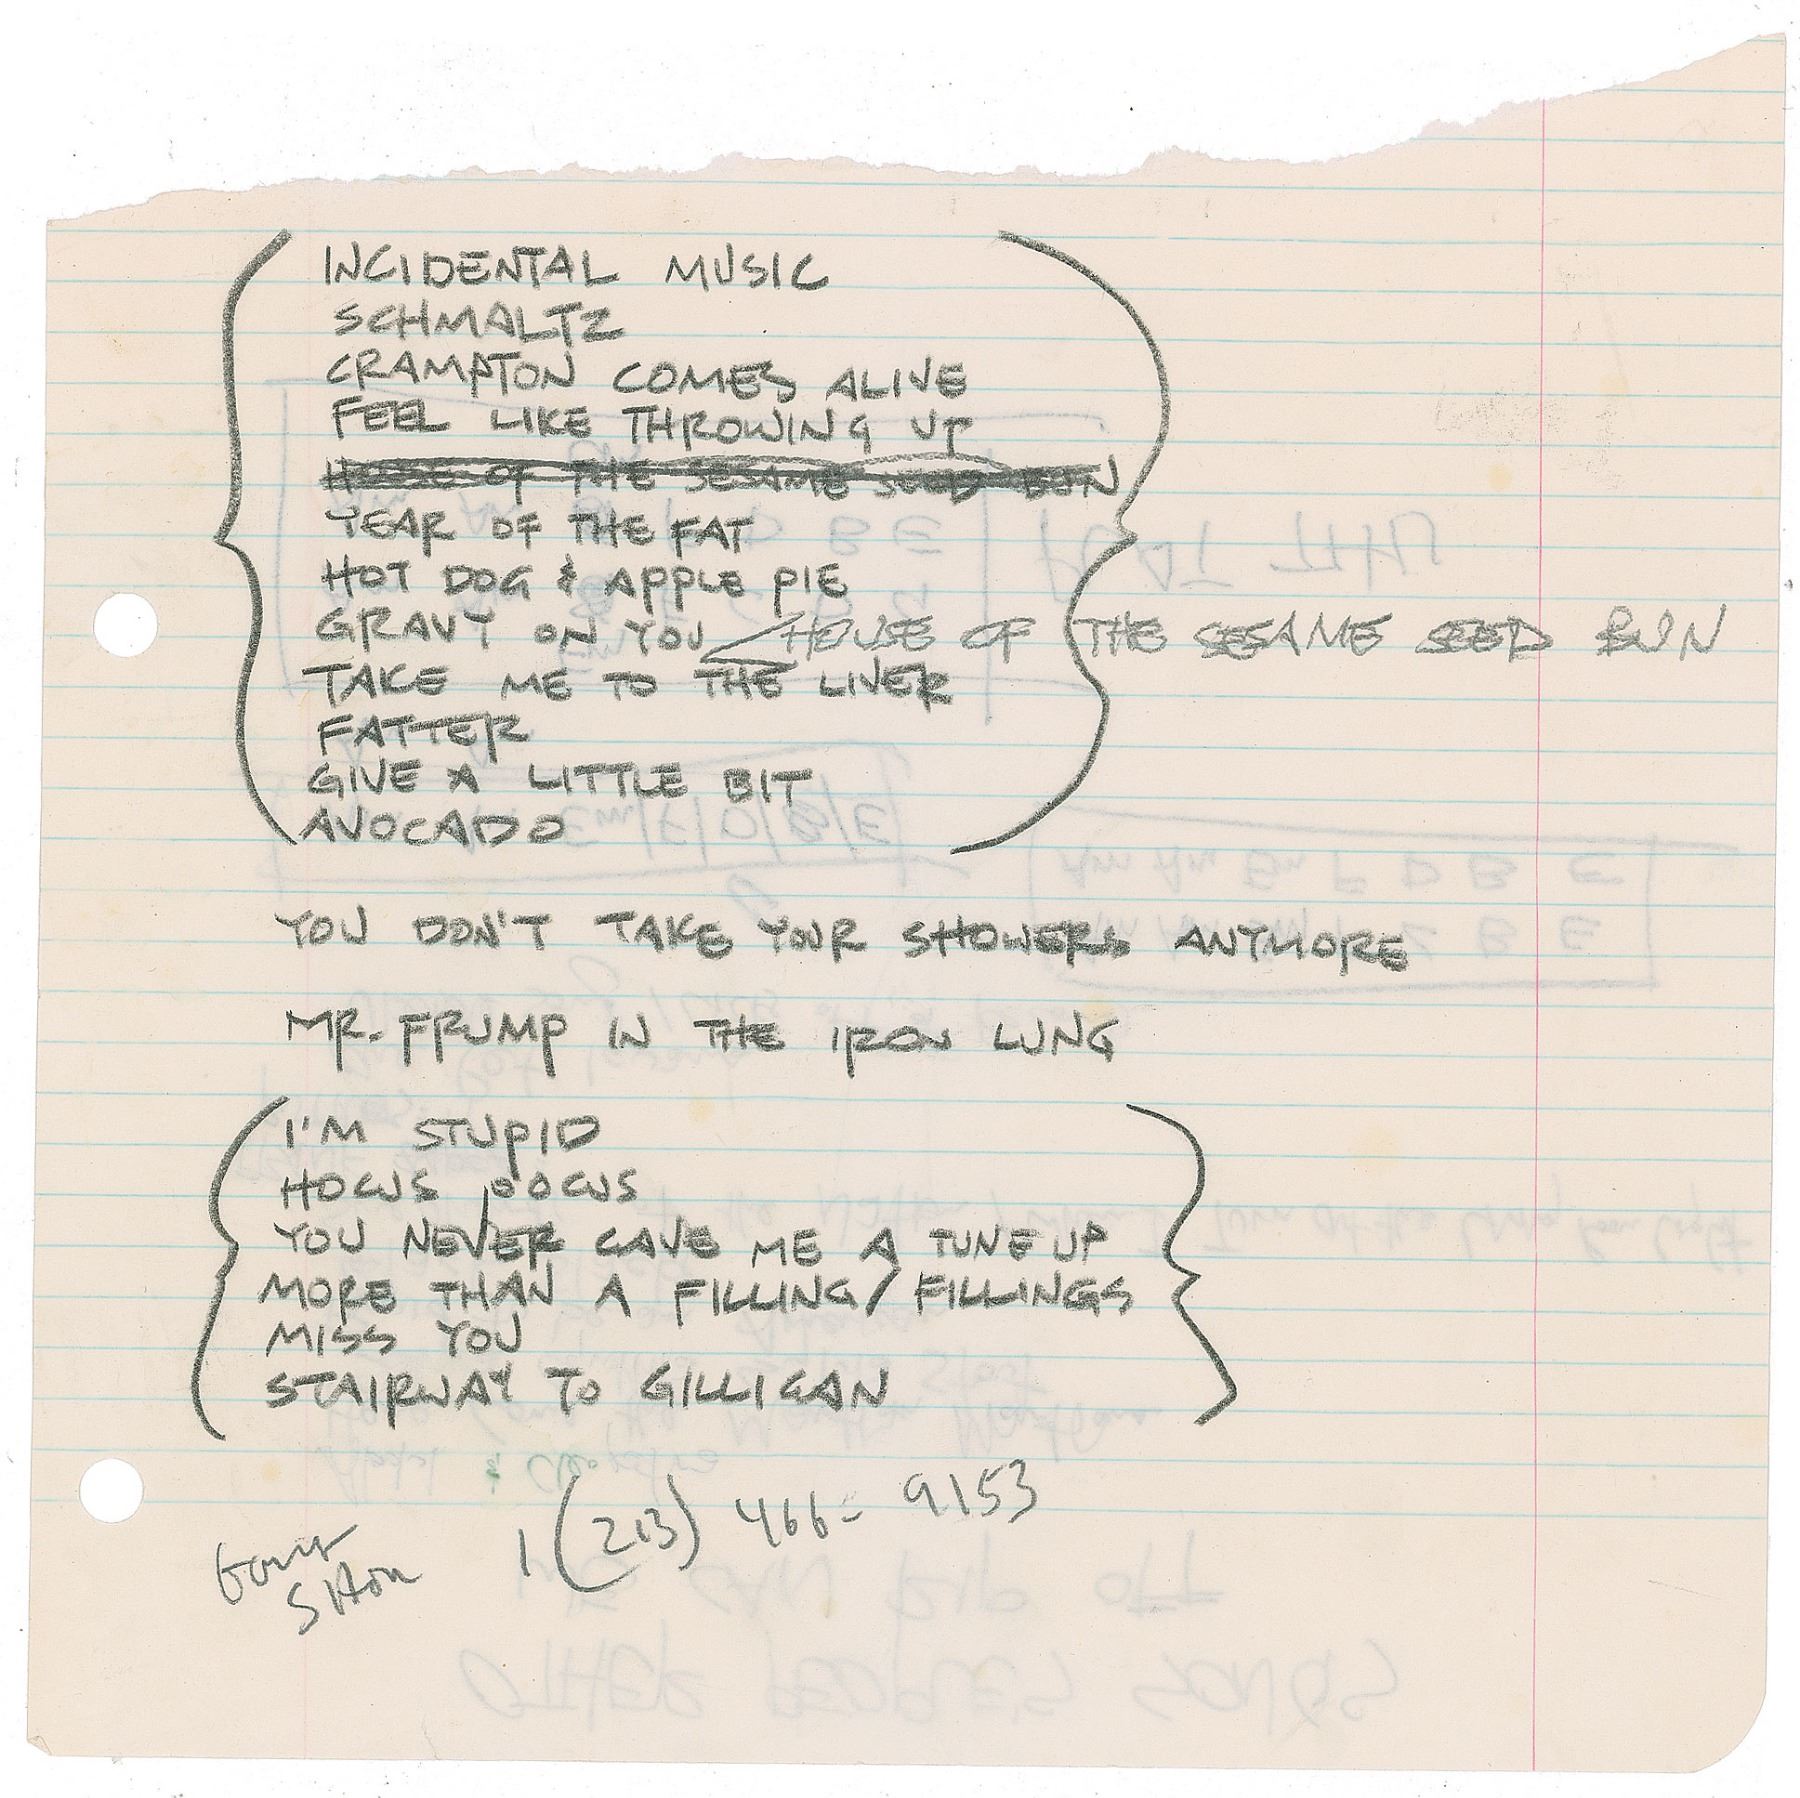 INCIDENTAL MUSIC
SCHMALTZ
CRAMPTON COMES ALIVE
FEEL LIKE THROWING UP
HOUSE OF THE SESAME SEED BUN
YEAR OF THE FAT
HOT DOG & APPLE PIE
GRAVY ON YOU HOUSE OF THE SESAME SEED BUN
TAKE ME TO THE LIVER
FATTER
GIVE A LITTLE BIT
AVOCADO
YOU DON'T TAKE YOUR SHOWERS ANYMORE
MR. FRUMP IN THE IRON LUNG
I'M STUPID
HOCUS POCUS
YOU NEVER GAVE ME A TUNE UP
MORE THAN A FILLING/FILLINGS
MISS YOU
STAIRWAY TO GILLIGAN
1 (213) 466-9153